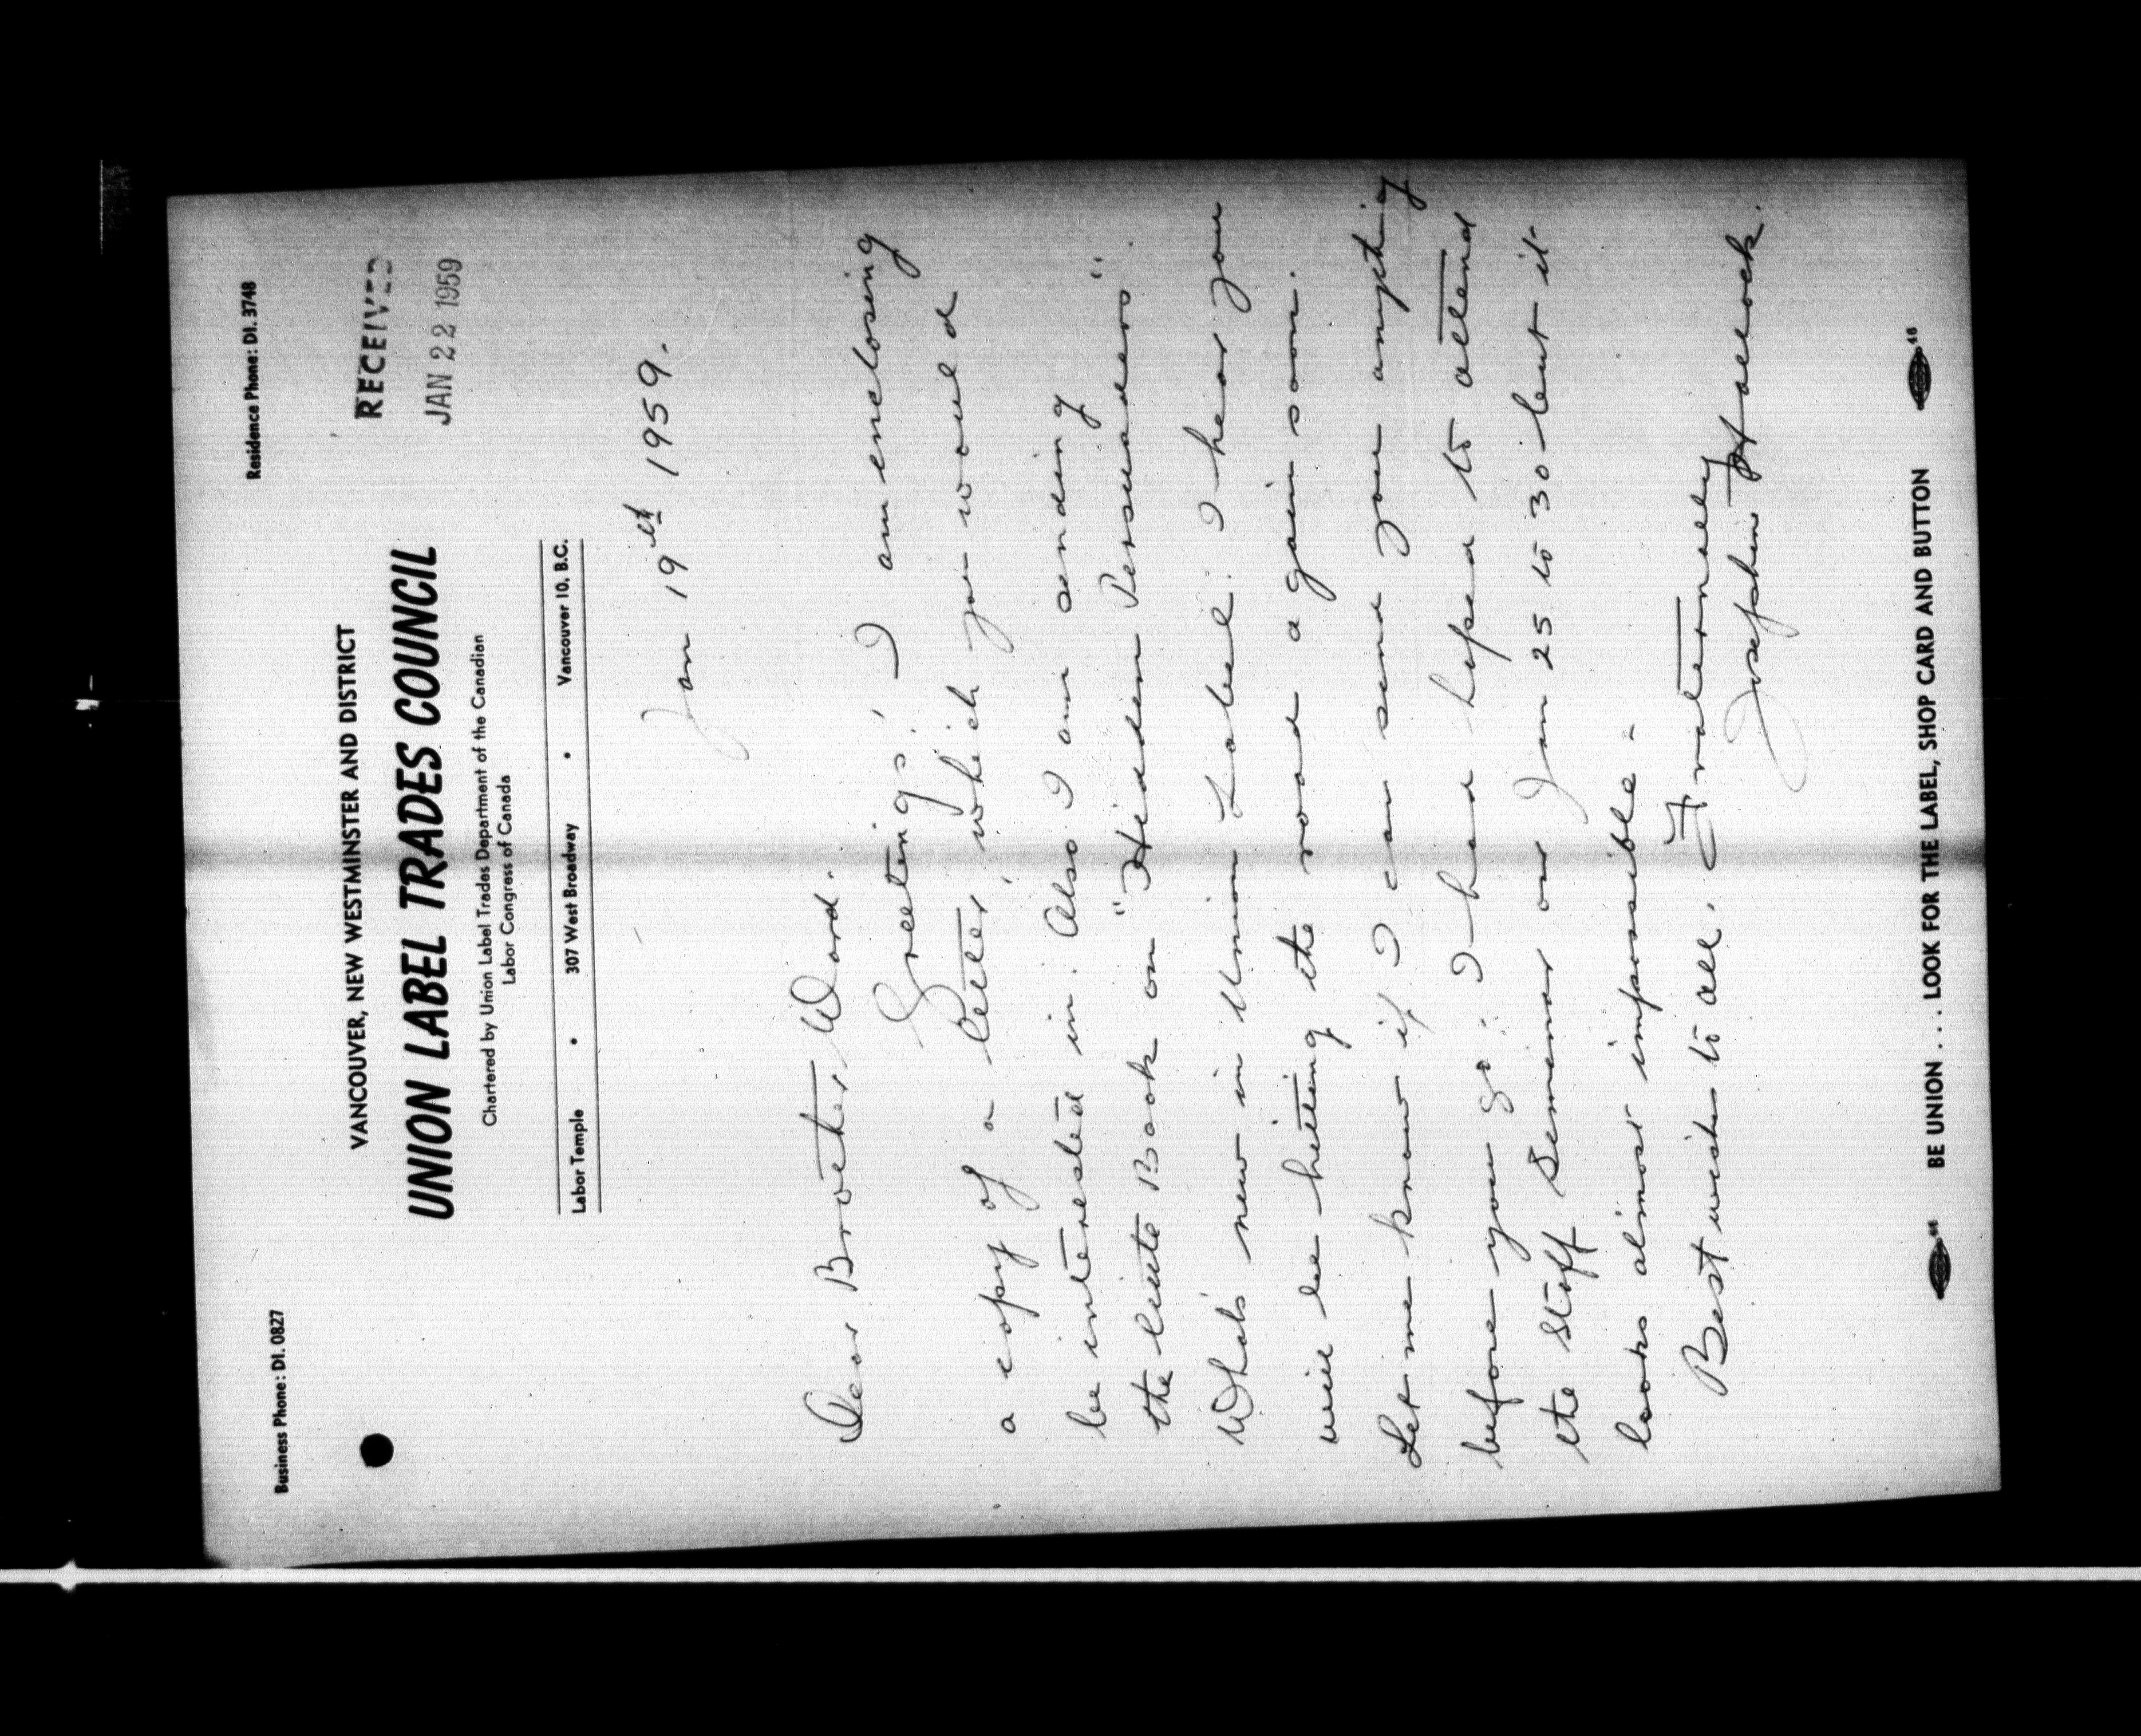 Business Phone: DI. 0827
Residence Phone: DI. 3748
VANCOUVER, NEW WESTMINSTER AND DISTRICT
UNION LABEL TRADES COUNCIL
Chartered by Union Label Trades Department of the Canadian
Labor Congress of Canada
Labor Temple • 307 West Broadway • Vancouver 10, B.C.
RECEIVED
JAN 22 1959
Jan 19th 1959.
Dear Brother Ward.
Greetings! I am enclosing
a copy of a letter which you would
be interested in. Also I am sending
the little Book on "Hidden Persuaders".
What's new in Union Label. I hear you
will be hitting the road again soon.
Let me know if I can send you anything
before you go. I had hoped to attend
the Staff Seminar on Jan 25 to 30 but it
looks almost impossible =
Best wishes to all. Fraternally
Josephine Hallock.
46 BE UNION . . . LOOK FOR THE LABEL, SHOP CARD AND BUTTON 46